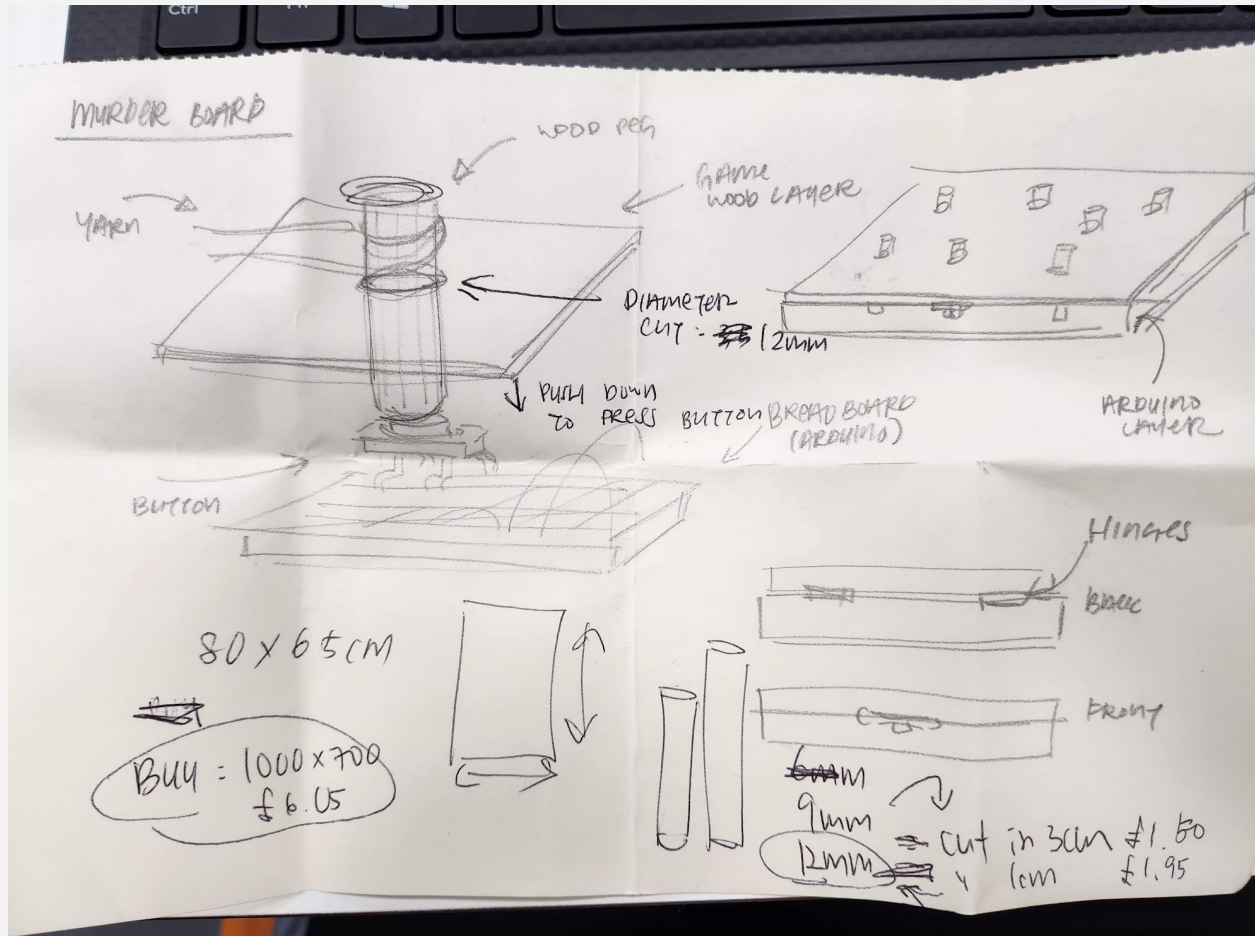 Ctrl
MURDER BOARD
WOOD PEG
YARN
GAME
WOOD LAYER
DIAMETER
CUT - 12mm
PUSH DOWN
TO PRESS BUTTON
BREADBOARD
(ARDUINO)
ARDUINO
LAYER
BUTTON
HINGES
BACK
80 x 65cm
FRONT
BUY = 1000 x 700
£6.05
6mm
9mm
cut in 3cm £1.50
12mm
" 1cm £1.95